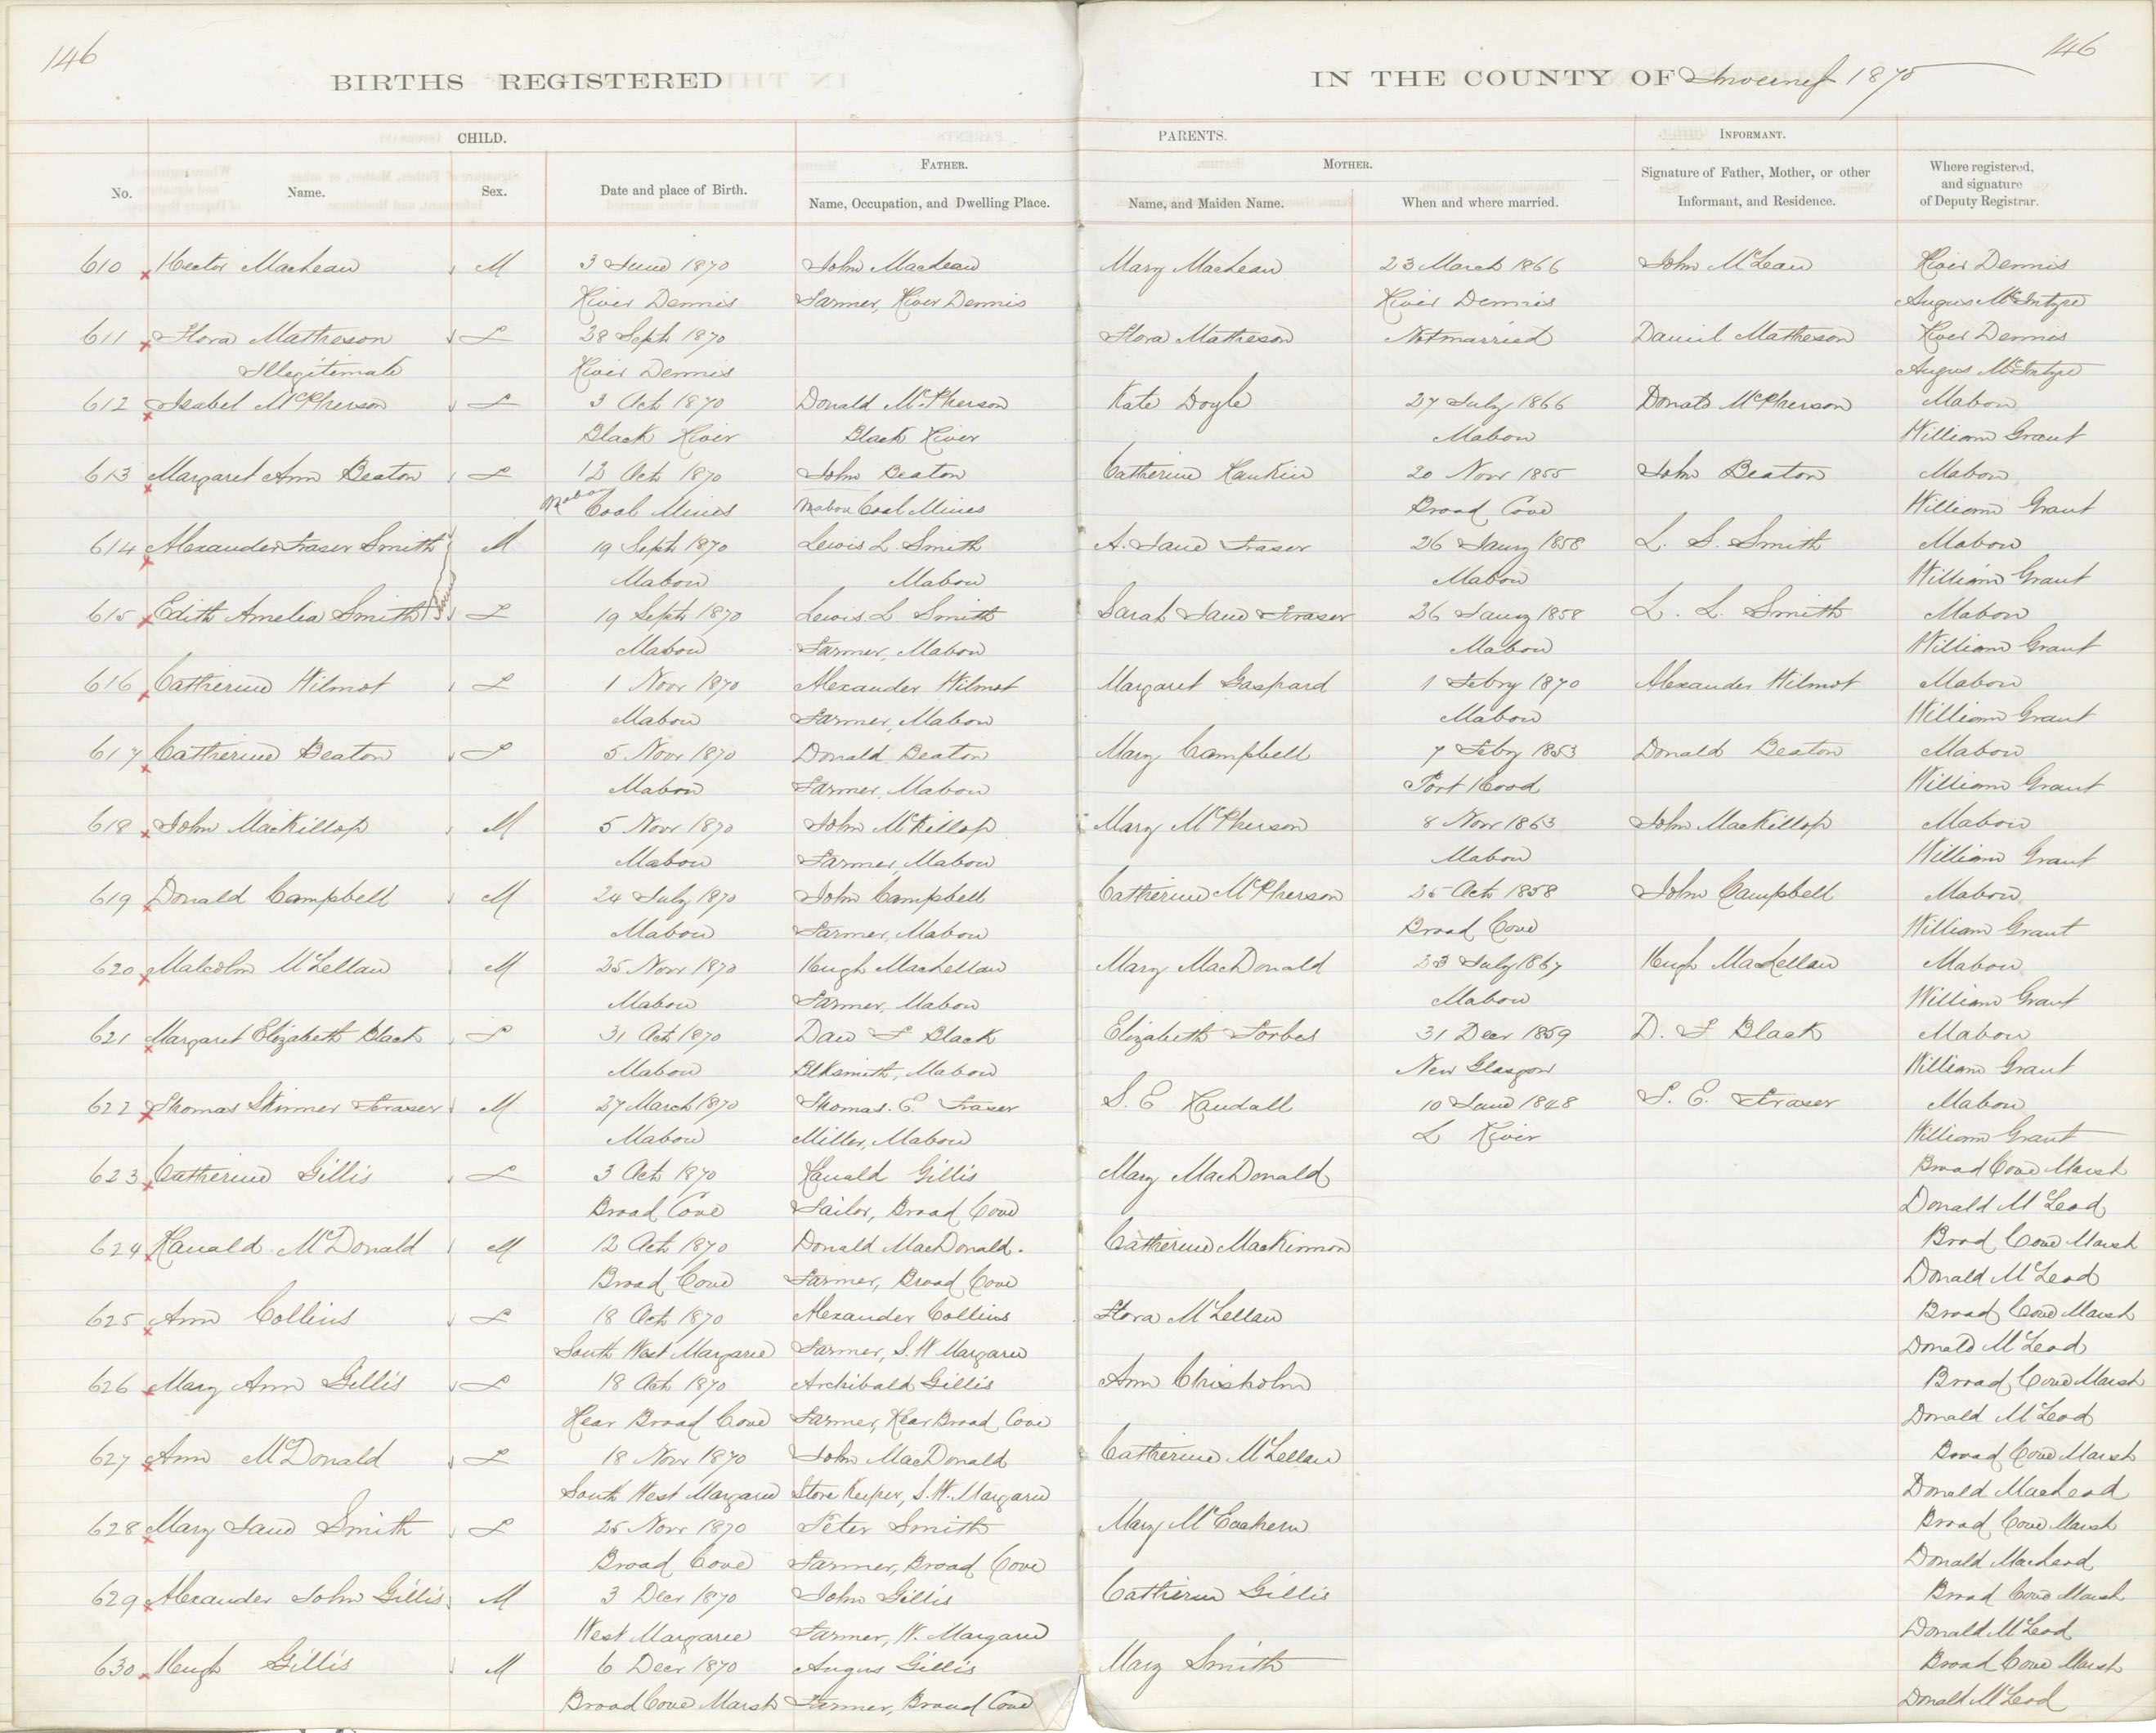 146
146
BIRTHS REGISTERED
IN THE COUNTY OF Inverness 1870
CHILD.
PARENTS.
INFORMANT.
FATHER.
MOTHER.
No.
Name.
Sex.
Date and place of Birth.
Name, Occupation, and Dwelling Place.
Name, and Maiden Name.
When and where married.
Signature of Father, Mother, or other
Informant, and Residence.
Where registered,
and signature
of Deputy Registrar.
610 Hector MacLean M 3 June 1870 John MacLean Mary MacLean 23 March 1866 John McLean River Dennis
River Dennis Farmer, River Dennis River Dennis Angus McIntyre
611 Flora Matheson F 28 Sept 1870 Flora Matheson Not married Daniel Matheson River Dennis
Illegitimate River Dennis Angus McIntyre
612 Isabel McPherson F 3 Oct 1870 Donald McPherson Kate Doyle 27 July 1866 Donald McPherson Mabou
Black River Black River Mabou William Grant
613 Margaret Ann Beaton F 12 Oct 1870 John Beaton Catherine Rankin 20 Novr 1855 John Beaton Mabou
Mabou Coal Mines Mabou Coal Mines Broad Cove William Grant
614 Alexander Fraser Smith M 19 Sept 1870 Lewis L. Smith A. Jane Fraser 26 Jany 1858 L. S. Smith Mabou
Mabou Mabou Mabou William Grant
615 Edith Amelia Smith F 19 Sept 1870 Lewis L. Smith Sarah Jane Fraser 26 Jany 1858 L. L. Smith Mabou
Mabou Farmer, Mabou Mabou William Grant
616 Catherine Wilmot F 1 Novr 1870 Alexander Wilmot Margaret Gaspard 1 Febry 1870 Alexander Wilmot Mabou
Mabou Farmer, Mabou Mabou William Grant
617 Catherine Beaton F 5 Novr 1870 Donald Beaton Mary Campbell 7 Feby 1853 Donald Beaton Mabou
Mabou Farmer, Mabou Port Hood William Grant
618 John MacKillop M 5 Novr 1870 John McKillop Mary McPherson 8 Novr 1863 John MacKillop Mabou
Mabou Farmer, Mabou Mabou William Grant
619 Donald Campbell M 24 July 1870 John Campbell Catherine McPherson 25 Oct 1858 John Campbell Mabou
Mabou Farmer, Mabou Broad Cove William Grant
620 Malcolm McLellan M 25 Novr 1870 Hugh MacLellan Mary MacDonald 23 July 1867 Hugh MacLellan Mabou
Mabou Farmer, Mabou Mabou William Grant
621 Margaret Elizabeth Black F 31 Oct 1870 Dan F Black Elizabeth Forbes 31 Decr 1859 D. F Black Mabou
Mabou Blksmith, Mabou New Glasgow William Grant
622 Thomas Skinner Fraser M 27 March 1870 Thomas. E. Fraser S. E Randall 10 June 1848 T. E. Fraser Mabou
Mabou Miller, Mabou L River William Grant
623 Catherine Gillis F 3 Oct 1870 Ranald Gillis Mary MacDonald Broad Cove Marsh
Broad Cove Tailor, Broad Cove Donald McLeod
624 Ranald McDonald M 12 Oct 1870 Donald MacDonald. Catherine MacKinnon Broad Cove Marsh
Broad Cove Farmer, Broad Cove Donald McLeod
625 Ann Collins F 18 Oct 1870 Alexander Collins Flora McLellan Broad Cove Marsh
South West Margaree Farmer, S. W Margaree Donald McLeod
626 Mary Ann Gillis F 18 Oct 1870 Archibald Gillis Ann Chisholm Broad Cove Marsh
Rear Broad Cove Farmer, Rear Broad Cove Donald McLeod
627 Ann McDonald F 18 Novr 1870 John MacDonald Catherine McLellan Broad Cove Marsh
South West Margaree Store Keeper, S. W. Margaree Donald MacLeod
628 Mary Jane Smith F 25 Novr 1870 Peter Smith Mary McEachern Broad Cove Marsh
Broad Cove Farmer, Broad Cove Donald MacLeod
629 Alexander John Gillis M 3 Decr 1870 John Gillis Catherine Gillis Broad Cove Marsh
West Margaree Farmer, W. Margaree Donald McLeod
630 Hugh Gillis M 6 Decr 1870 Angus Gillis Mary Smith Broad Cove Marsh
Broad Cove Marsh Farmer, Broad Cove Donald McLeod